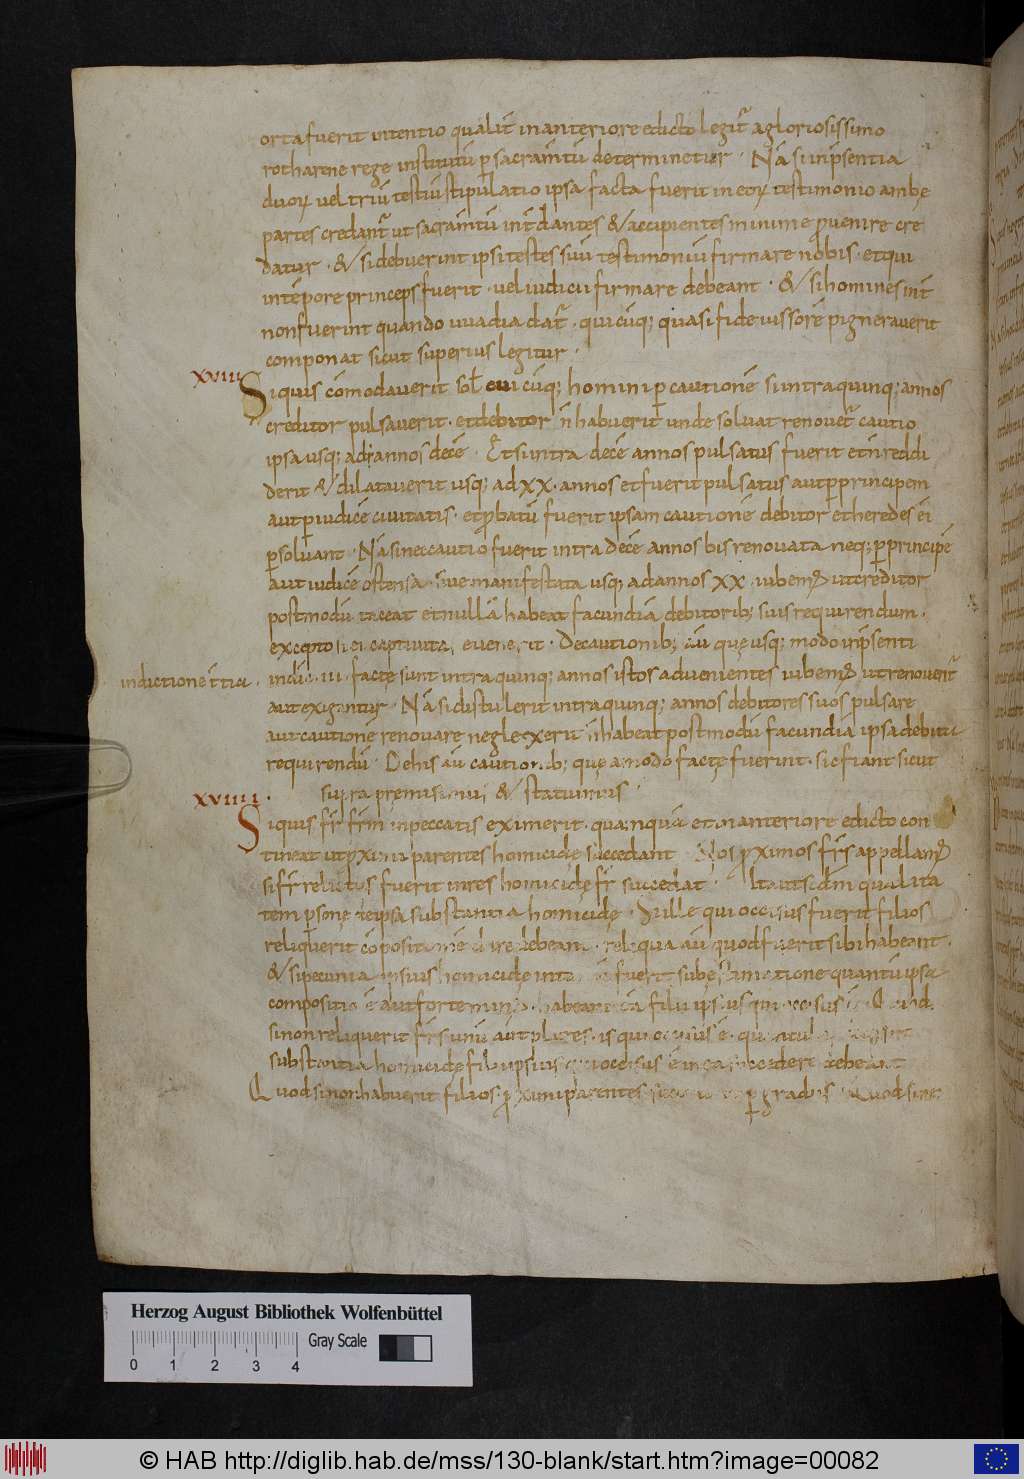 orta fuerit intentio qualit̄ in anteriore edicto legit̃ a gloriosissimo
rotharene rege institutū p̱ sacram̄tū determinetur · Nā si in p̄sentia
duoꝝ uel triū testiū stipulatio ipsa facta fuerit in eoꝝ testimonio ambę
partes credant̃ ut sacram̄tū int̄ dantes & accipientes minime ꝓuenire cre
datur · & si debuerint ipsi testes suū testimoniū firmare nobis · et qui
in tēpore princeps fuerit · uel iudicii firmare debeant · & si homines int̄
non fuerint quando uuadia dat̃ · qui cūq; quasi fideiussorē pigneraverit
componat sicut superius legitur ·
xviii
Si quis cōmodaverit sol̄ cui cūq; homini p̱ cautionē si intra quinq; annos
creditor pulsaverit · et debitor n̄ habuerit unde solvat renovet̃ cautio
ipsa usq; ad annos decē · Et si intra decē annos pulsatus fuerit et n̄ reddi
derit & dilataverit usq; ad xx · annos et fuerit pulsatus aut p̱ principem
aut p̱ iudicē civitatis · et ꝓbatū fuerit ipsam cautionē debitor et heredes ei
p̱solvant · Nā si nec cautio fuerit intra decē annos bis renovata neq; p̱ principē
aut iudicē ostensa · sive manifestata usq; ad annos xx · iubem̄ ut creditor
postmodū taceat et nullā habeat facundiā debitorib; suis requirendum ·
excepto si ei captivitas evenerit · De cautionib; aū que usq; modo in p̄senti
indictione t̄tia · indic̄ · iii · factę sunt intra quinq; annos istos advenientes iubem̄ ut renovent̃
aut exigantur · Nā si distulerit intra quinq; annos debitores suos pulsare
aut cautionē renovare neglexerit n̄ habeat postmodū facundia ipsa debitū
requirendū · De his aū cautionib; que amodo factę fuerint · sic fiant sicut
supra premisimus & statuimus ·
xviiii ·
Si quis fr̄ fr̄m in peccatis eximerit · quamquā et in anteriore edicto con
tineat ut ꝓximi parentes homicidę succedant · Nos ꝓximos fr̄s appellam̄
si fr̄ relictus fuerit in res homicidę fr̄ succedat · Ita ut scd̄m qualita
tem p̱sonę de ipsa substantia homicidę · si ille qui occisus fuerit filios
reliquerit cōpositionē dare debeant · reliqua aū quod fuerit sibi habeant ·
& si pecunia ipsius homicidę fuerit sub estimatione quantū ipsa
compositio ē aut forte minus · habeant eā filii ipsius qui occisus ē · Quod
si non reliquerit fr̄s unū aut plures · is qui occisus ē ·
substantia homicidę filii ipsius qui occisus ē in ea succedere debeant
Quod si non habuerit filios · ꝓximi parentes p̱ gradus · Quod si
Herzog August Bibliothek Wolfenbüttel
Gray Scale
0 1 2 3 4
© HAB http://diglib.hab.de/mss/130-blank/start.htm?image=00082